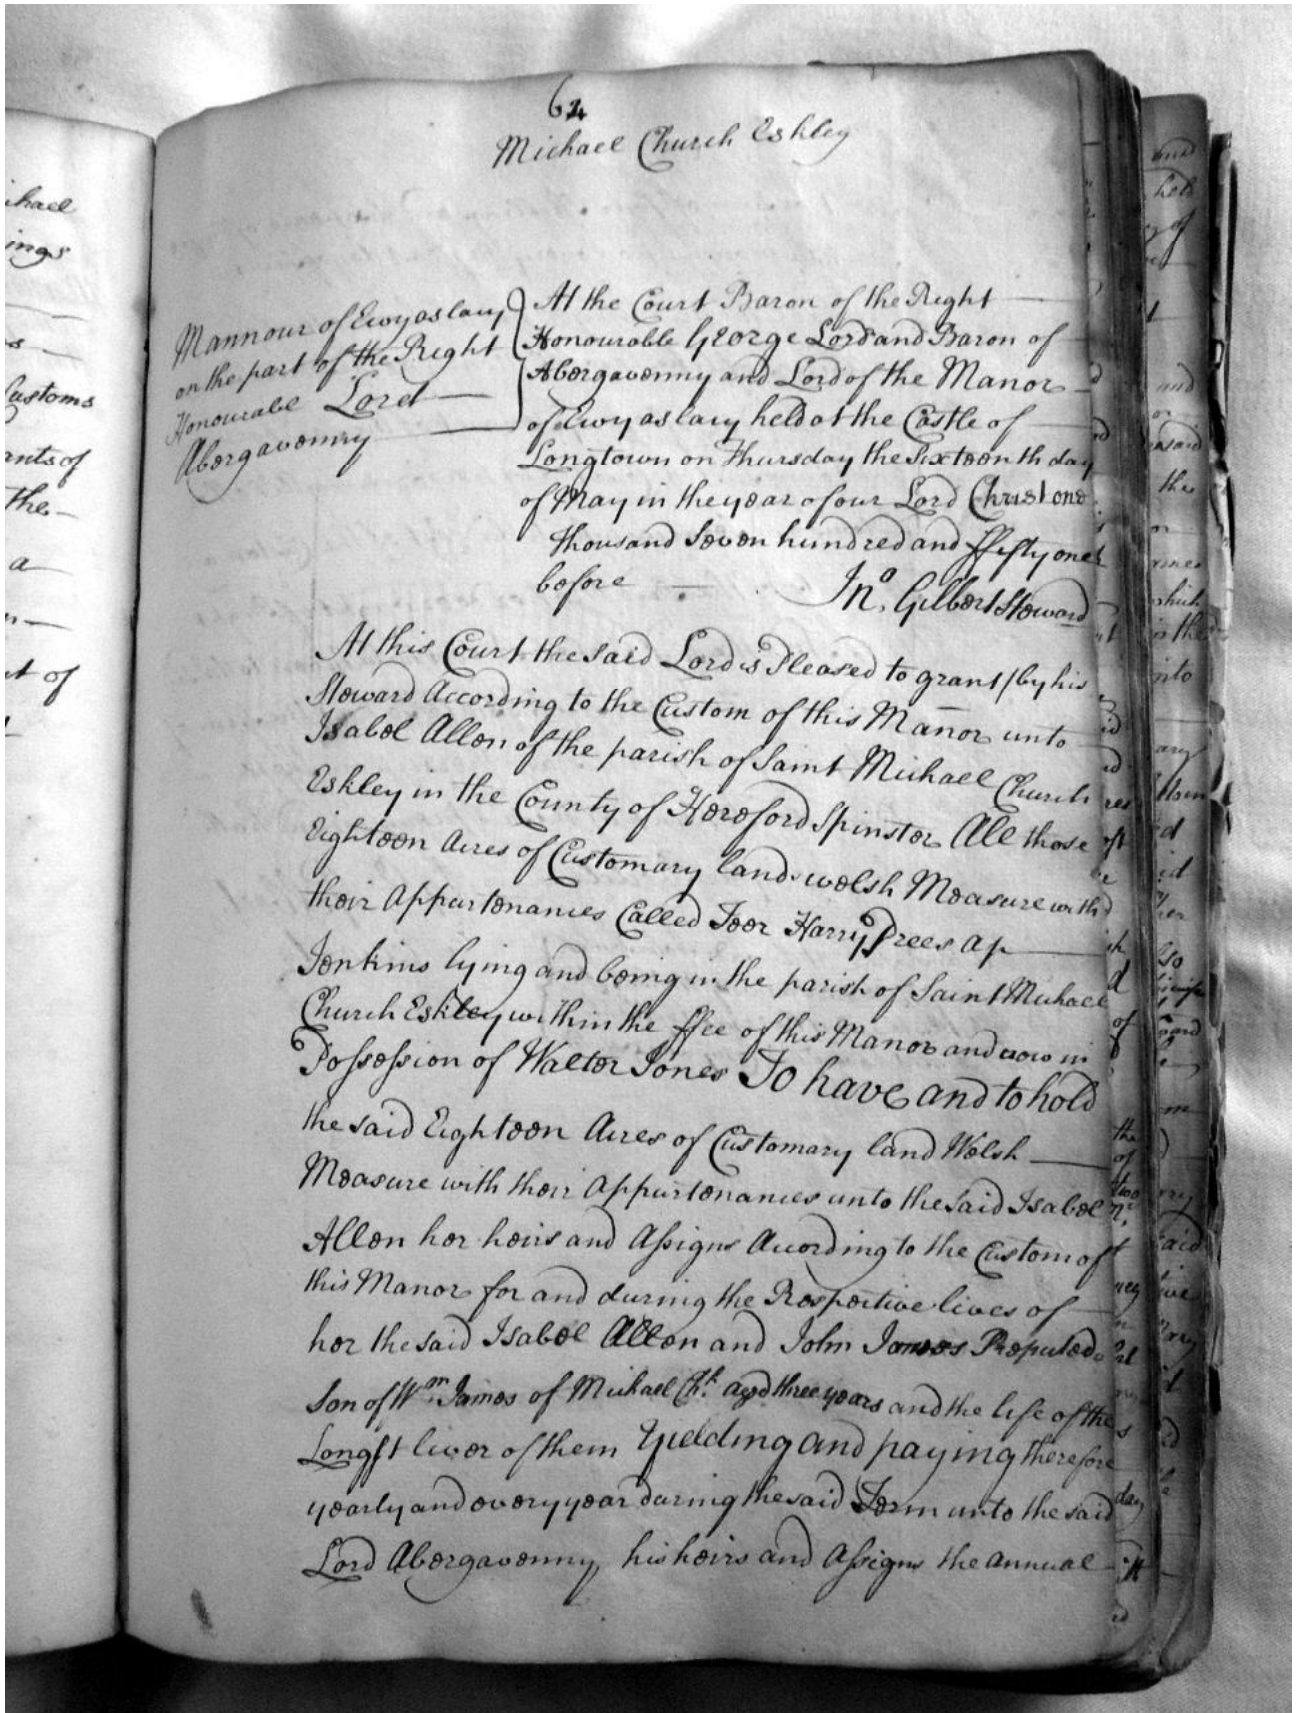 64
Michael Church Eskley
Mannour of Ewyaslacy
on the part of the Right
Honourabl Lord
Abergavenny
At the Court Baron of the Right
Honourable George Lord and Baron of
Abergavenny and Lord of the Manor
of Ewyaslacy held at the Castle of
Longtown on Thursday the Sixteenth day
of May in the year of our Lord Christ one
thousand Seven hundred and ffifty one
before
Jno. Gilbert Steward
At this Court the said Lord is Pleased to grant / by his
Steward According to the Custom of this Manor unto
Isabel Allen of the parish of Saint Michael Church
Eskley in the County of Hereford Spinster All those
Eighteen Acres of Customary land welsh Measure with
their Appurtenances Called Teer Harry Prees ap
Jenkins lying and being in the parish of Saint Michael
Church Eskley within the ffee of this Manor and now in
Possession of Walter Jones To have and to hold
the said Eighteen Acres of Customary land Welsh
Measure with their Appurtenances unto the said Isabel
Allen her heirs and Assigns According to the Custom of
this Manor for and during the Respective lives of
her the said Isabel Allen and John James Reputed
Son of Wm James of Michael Ch. aged three years and the life of the
Longst liver of them Yielding and paying therefore
yearly and every year during the said Term unto the said
Lord Abergavenny his heirs and Assigns the annual
ichael
ings
Customs
ants of
the
a
of